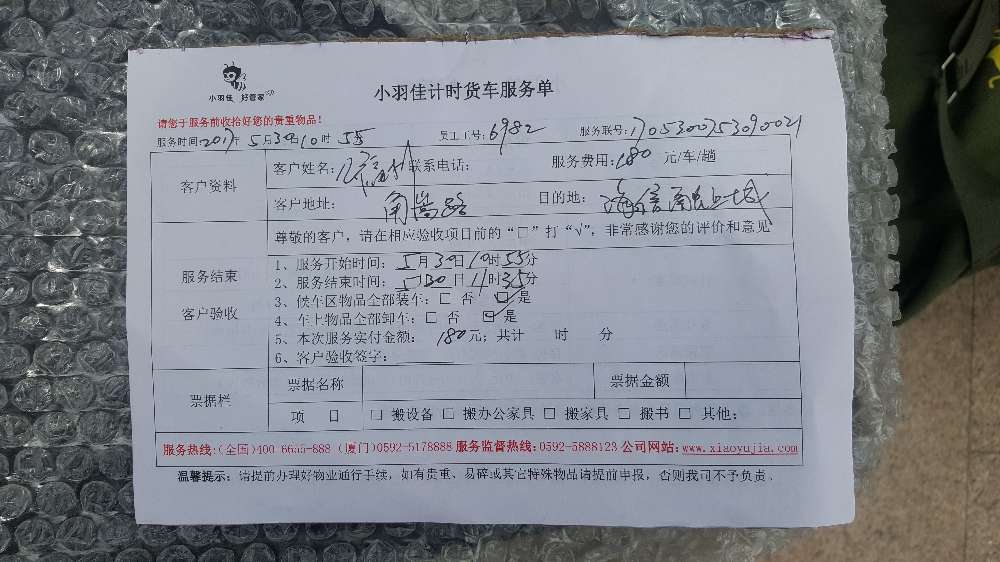 小羽佳 好管家
小羽佳计时货车服务单
请您于服务前收拾好您的贵重物品！
服务时间:2017年5月30日10时55 员工工号:6982 服务联号:170530075390021
客户资料
客户姓名: 联系电话: 服务费用:180元/车/趟
客户地址: 角嵩路 目的地:
尊敬的客户，请在相应验收项目前的“□”打“√”，非常感谢您的评价和意见
服务结束
客户验收
1、服务开始时间：5月30日10时55分
2、服务结束时间：5月30日11时35分
3、候车区物品全部装车：□ 否 ☑是
4、车上物品全部卸车：□ 否 ☑是
5、本次服务实付金额： 180元；共计 时 分
6、客户验收签字：
票据栏
票据名称 票据金额
项 目 □ 搬设备 □ 搬办公家具 □ 搬家具 □ 搬书 □ 其他：
服务热线:(全国)400 6655-888 (厦门)0592-5178888 服务监督热线:0592-5888123 公司网站:www.xiaoyujia.com
温馨提示：请提前办理好物业通行手续，如有贵重、易碎或其它特殊物品请提前申报，否则我司不予负责。